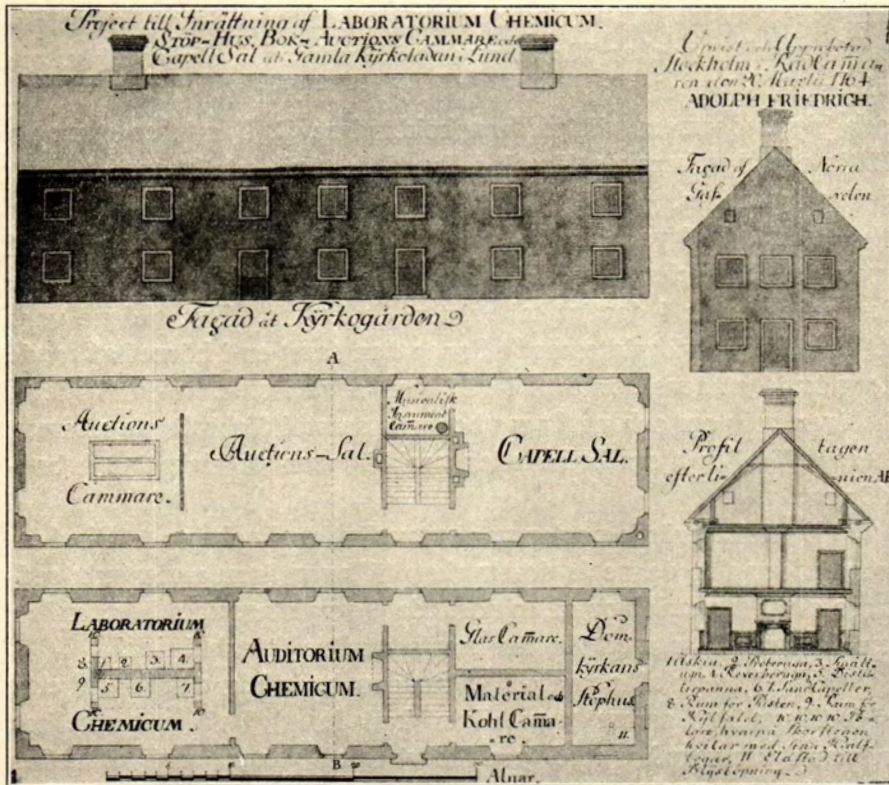 Project till Inrättning af LABORATORIUM CHEMICUM.
STÖP-HUS, BOK-AUCTIONS CAMMARE och
Capell Sal åt Gamla Kyrkoladan i Lund
Stockholm i RådCam̄a-
ren den Martii 1764
ADOLPH FRIEDRICH.
Façad af Norra
Gaf- velen
Façad åt Kÿrkogården
A
Auctions
Cammare.
Auctions-Sal.
Musicalisk
Instrument
Cam̄are
CAPELL SAL.
Profil tagen
efter li- nien AB
LABORATORIUM
8. 1. 2. 3. 4.
9. 5. 6. 7.
CHEMICUM.
AUDITORIUM
CHEMICUM.
Glas Cam̄are.
Material och
Kohl Cam̄a-
re.
Dom-
kÿrkans
Stöphus.
11.
1. Äskia, 2. Proberugn, 3. Smält-
ugn, 4. Reverberugn, 5. Distil-
lerpanna, 6. 7. Sand Capeller,
8. Rum för 9. Rum för
hvarpå Skorstenen
hvilar med sina Hvalf-
bogar, 11. Eldstad till
B
Alnar.